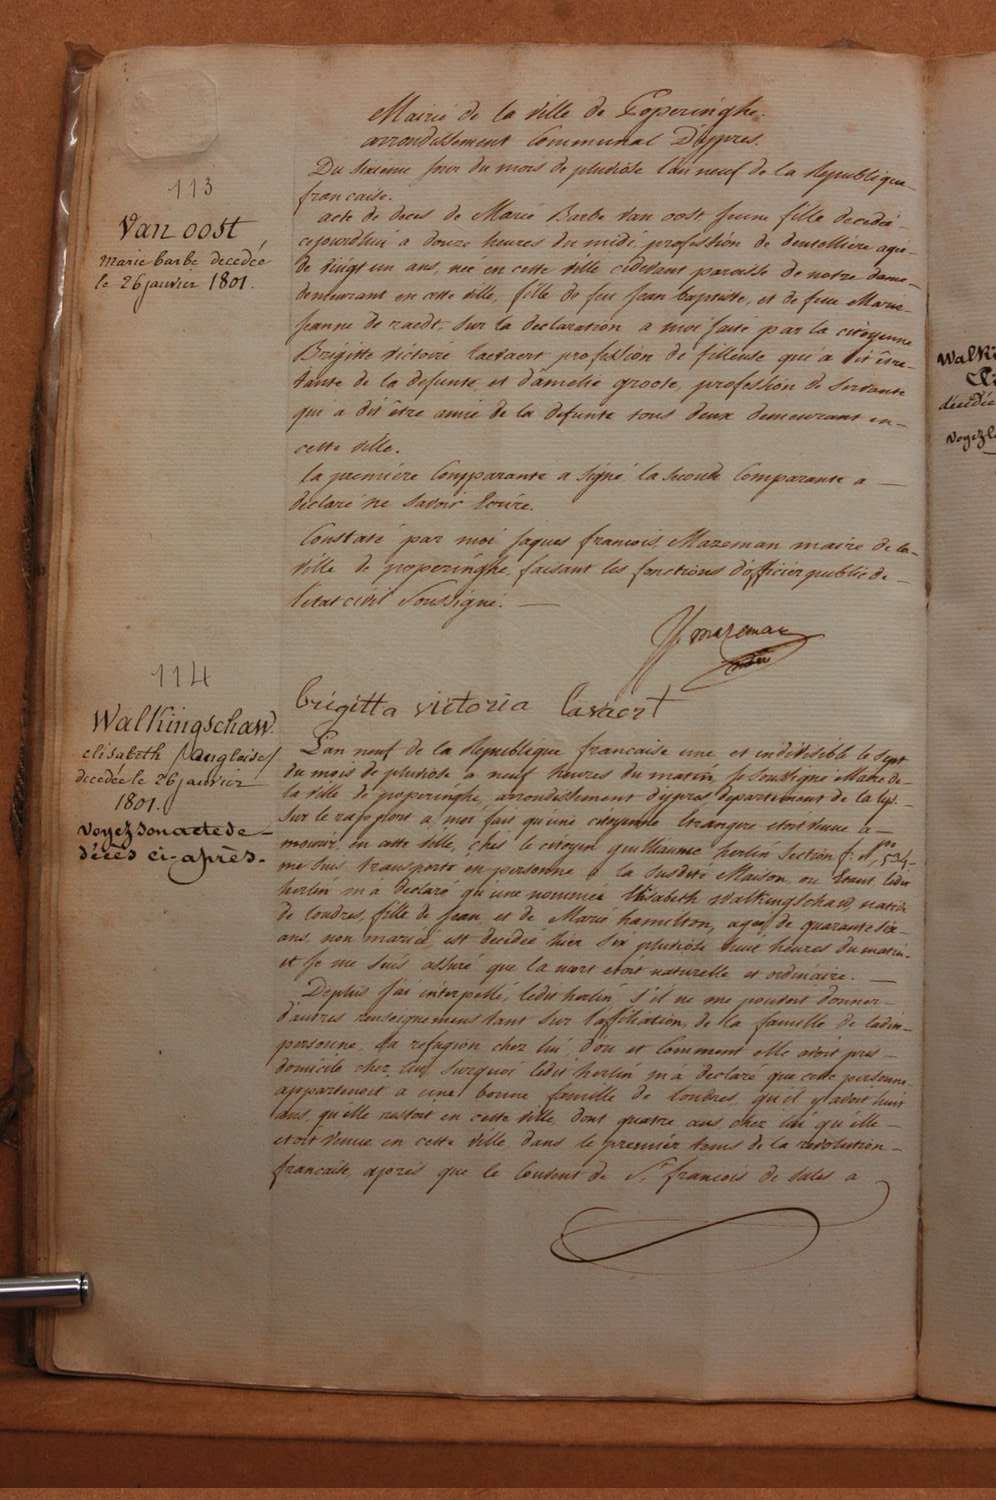 Mairie de la ville de Poperinghe.
arrondissement Communal D'ypres.
113
Van oost
marie barbe decedée
le 26 janvier 1801.
Du sixieme jour du mois de pluviose l'an neuf de la Republique
francaise.
acte de deces de Marie Barbe Van oost jeune fille decedée
cejourdhui a douze heures du midi, profession de dentelliere agée
de vingt un ans, née en cette ville cidevant paroisse de notre dame
demeurant en cette ville, fille de feu Jean baptiste, et de feue Marie
Jeanne de raedt. Sur la declaration a moi faite par la citoyenne
Brigitte victoire lavaert profession de filleuse qui a dit être
tante de la defunte et d'amelie groote, profession de servante
qui a dit être amie de la defunte tous deux demeurant en
cette ville.
la premiere Comparante a signé la seconde Comparante a
declaré ne savoir Ecrire.
Constaté par moi jaques francois Mazeman maire de la
ville de poperinghe, faisant les fonctions d'officier public de
l'etat civil Soussigné.
JJ. mazeman
brigitta victoria lavaert
114
Walkingschaw
elisabeth /anglaise/
decedée le 26 janvier
1801.
voyez son acte de
décès ci-après.
L'an neuf de la Republique francaise une et indivisible le sept
du mois de pluviose a neuf heures du matin, je Soussigné Maire de
la ville de poperinghe, arrondissement d'ypres, departement de la lys.
Sur le rapport a moi fait qu'une citoyenne Etrangere etoit venue a
mourir en cette ville, chés le citoyen guilliaume herlin Section f. Nro 534
me suis transporté en personne a la susdite Maison, ou Etant ledit
herlin m'a declaré qu'une nommée Elisabeth Walkingschaw, native
de londres, fille de Jean et de Marie hamilton, agée de quarante six
ans, non mariée, est decedée hier six pluviose huit heures du matin
et je me suis assuré que la mort etoit naturelle et ordinaire.
Depuis j'ai interpellé, ledit herlin s'il ne me pouvoit donner
d'autres renseignemens tant sur l'afiliation, de la famille de ladite
personne, sa refugion chez lui, d'ou et Comment elle avoit pris
domicile chez lui, Surquoi ledit herlin m'a declaré que cette personne
appartenoit a une bonne famille de londres, qu'il y avoit huit
ans, qu'elle restoit en cette ville, dont quatre ans chez lui qu'elle
etoit venue en cette ville dans le premier tems de la revolution
francaise, apres que le Couvent de St. francois de sales a
Walki
décédée
voyez le